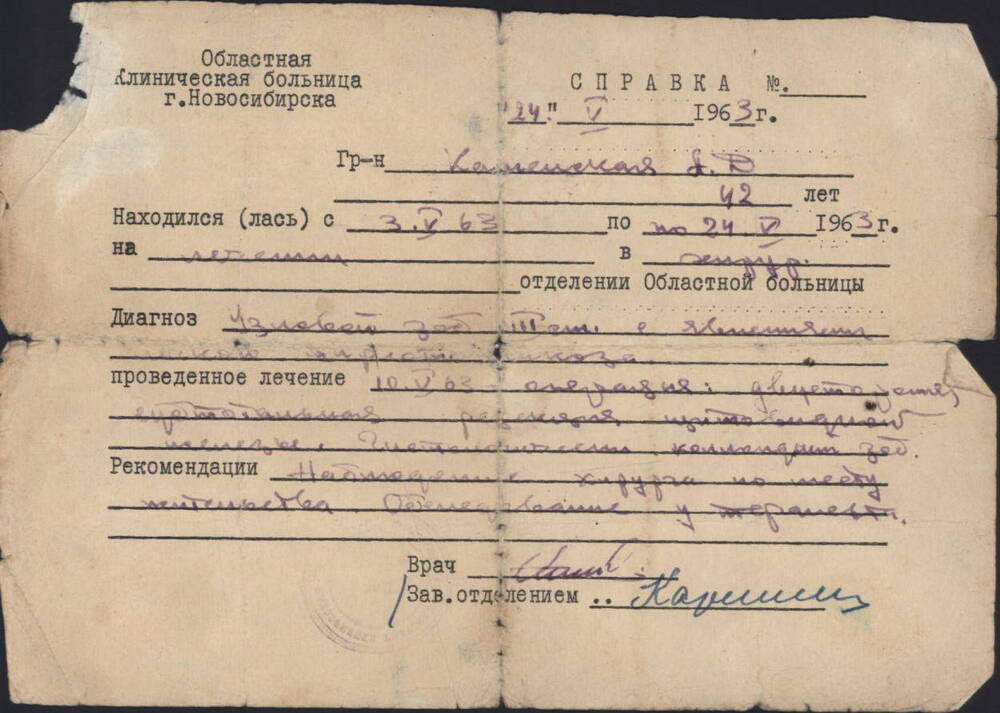 Областная
Клиническая больница
г.Новосибирска
СПРАВКА №.
"24" V 1963 г.
Гр-н Каменская А.Д
42 лет
Находился (лась) с 3.V 63 по по 24. V 1963 г.
на лечении в хирур.
отделении Областной больницы
Диагноз Узловой зоб III ст. с явлениями
проведенное лечение 10.V 63 операция: двусторонняя
субтотальная резекция щитовидной
железы. Гистологически коллоидный зоб.
Рекомендации Наблюдение хирурга по месту
жительства. Обследование у терапевта.
Врач
Зав.отделением ..